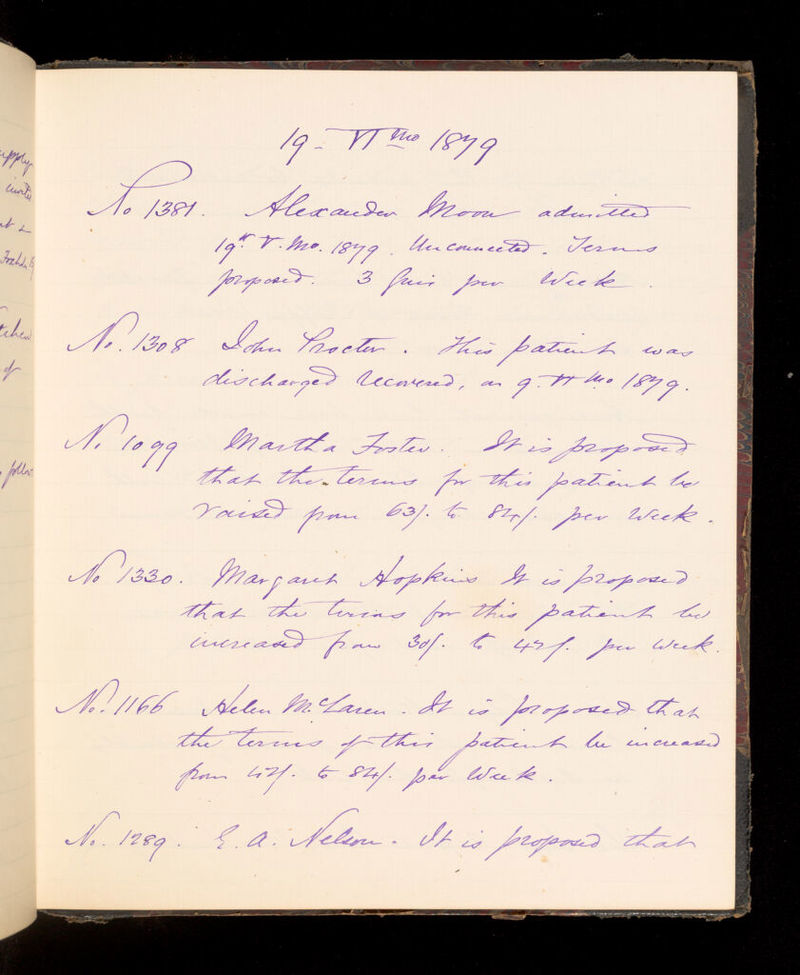 upply
19 - VI mo 1879
No 1381. Alexander Moon admitted
19th V. Mo. 1879. Unconnected. Terms
proposed. 3 Guis per Week.
No. 1308 John Procter. This patient was
discharged recovered, on 9. VI Mo. 1879.
No. 1099 Martha Foster. It is proposed
that the terms for this patient be
raised from 63/. to 84/. per Week.
No 1330. Margaret Hopkins It is proposed
that the terms for this patient be
increased from 30/. to 42/. per Week.
No. 1166 Helen McLaren. It is proposed that
the terms of this patient be increased
from 42/. to 84/. per Week.
No. 1289. E. A. Nelson. It is proposed that
of